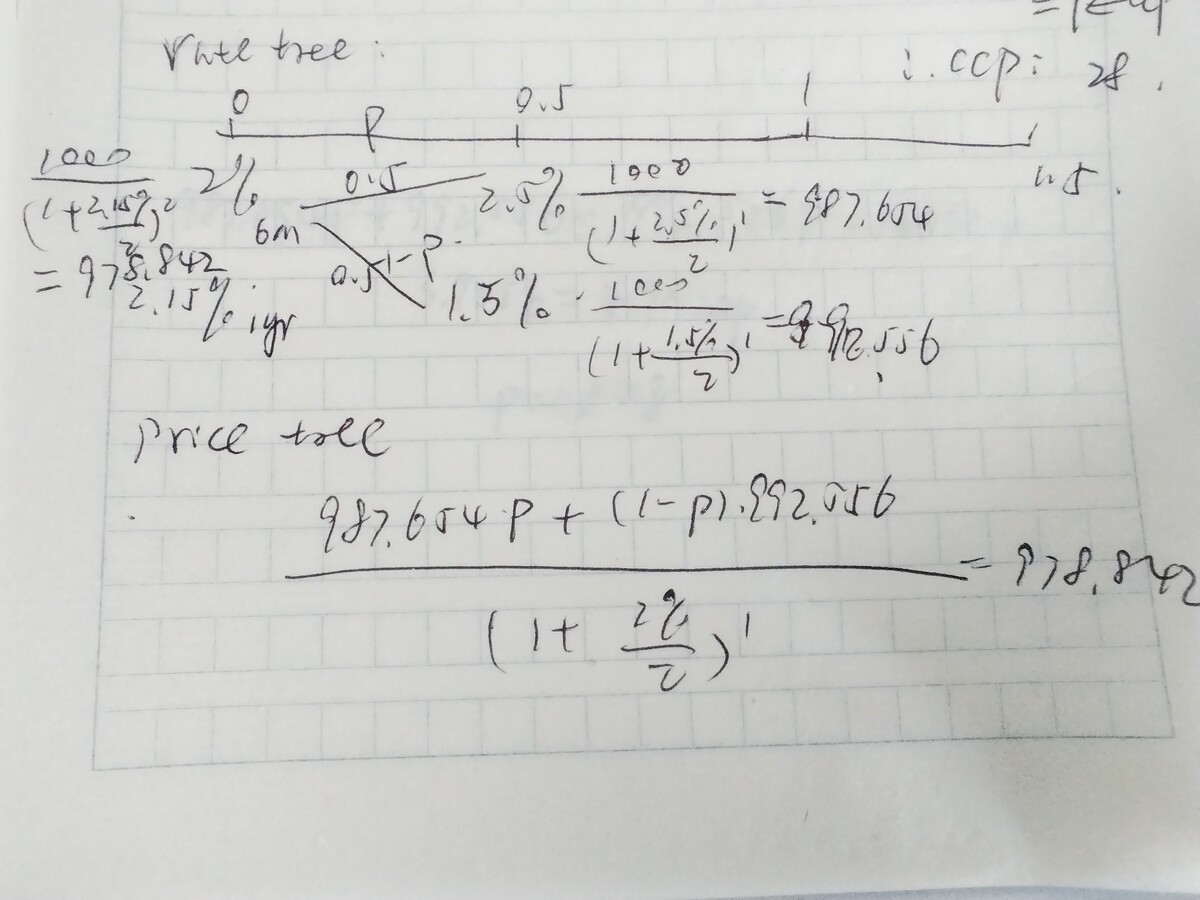 Rate tree :
∴ CCP : 28 .
0 P 0.5 1 1.5 .
1000 / (1 + 2.15% / 2)² = 978.842
2% 0.5 2.5% 1000 / (1 + 2.5% / 2)¹ = 987.654
6m
0.5 1-P 1.5% . 1000 / (1 + 1.5% / 2)¹ = 992.556
2.15% 1yr
price tree
987.654 P + (1-P).992.556 / (1 + 2% / 2)¹ = 978.842